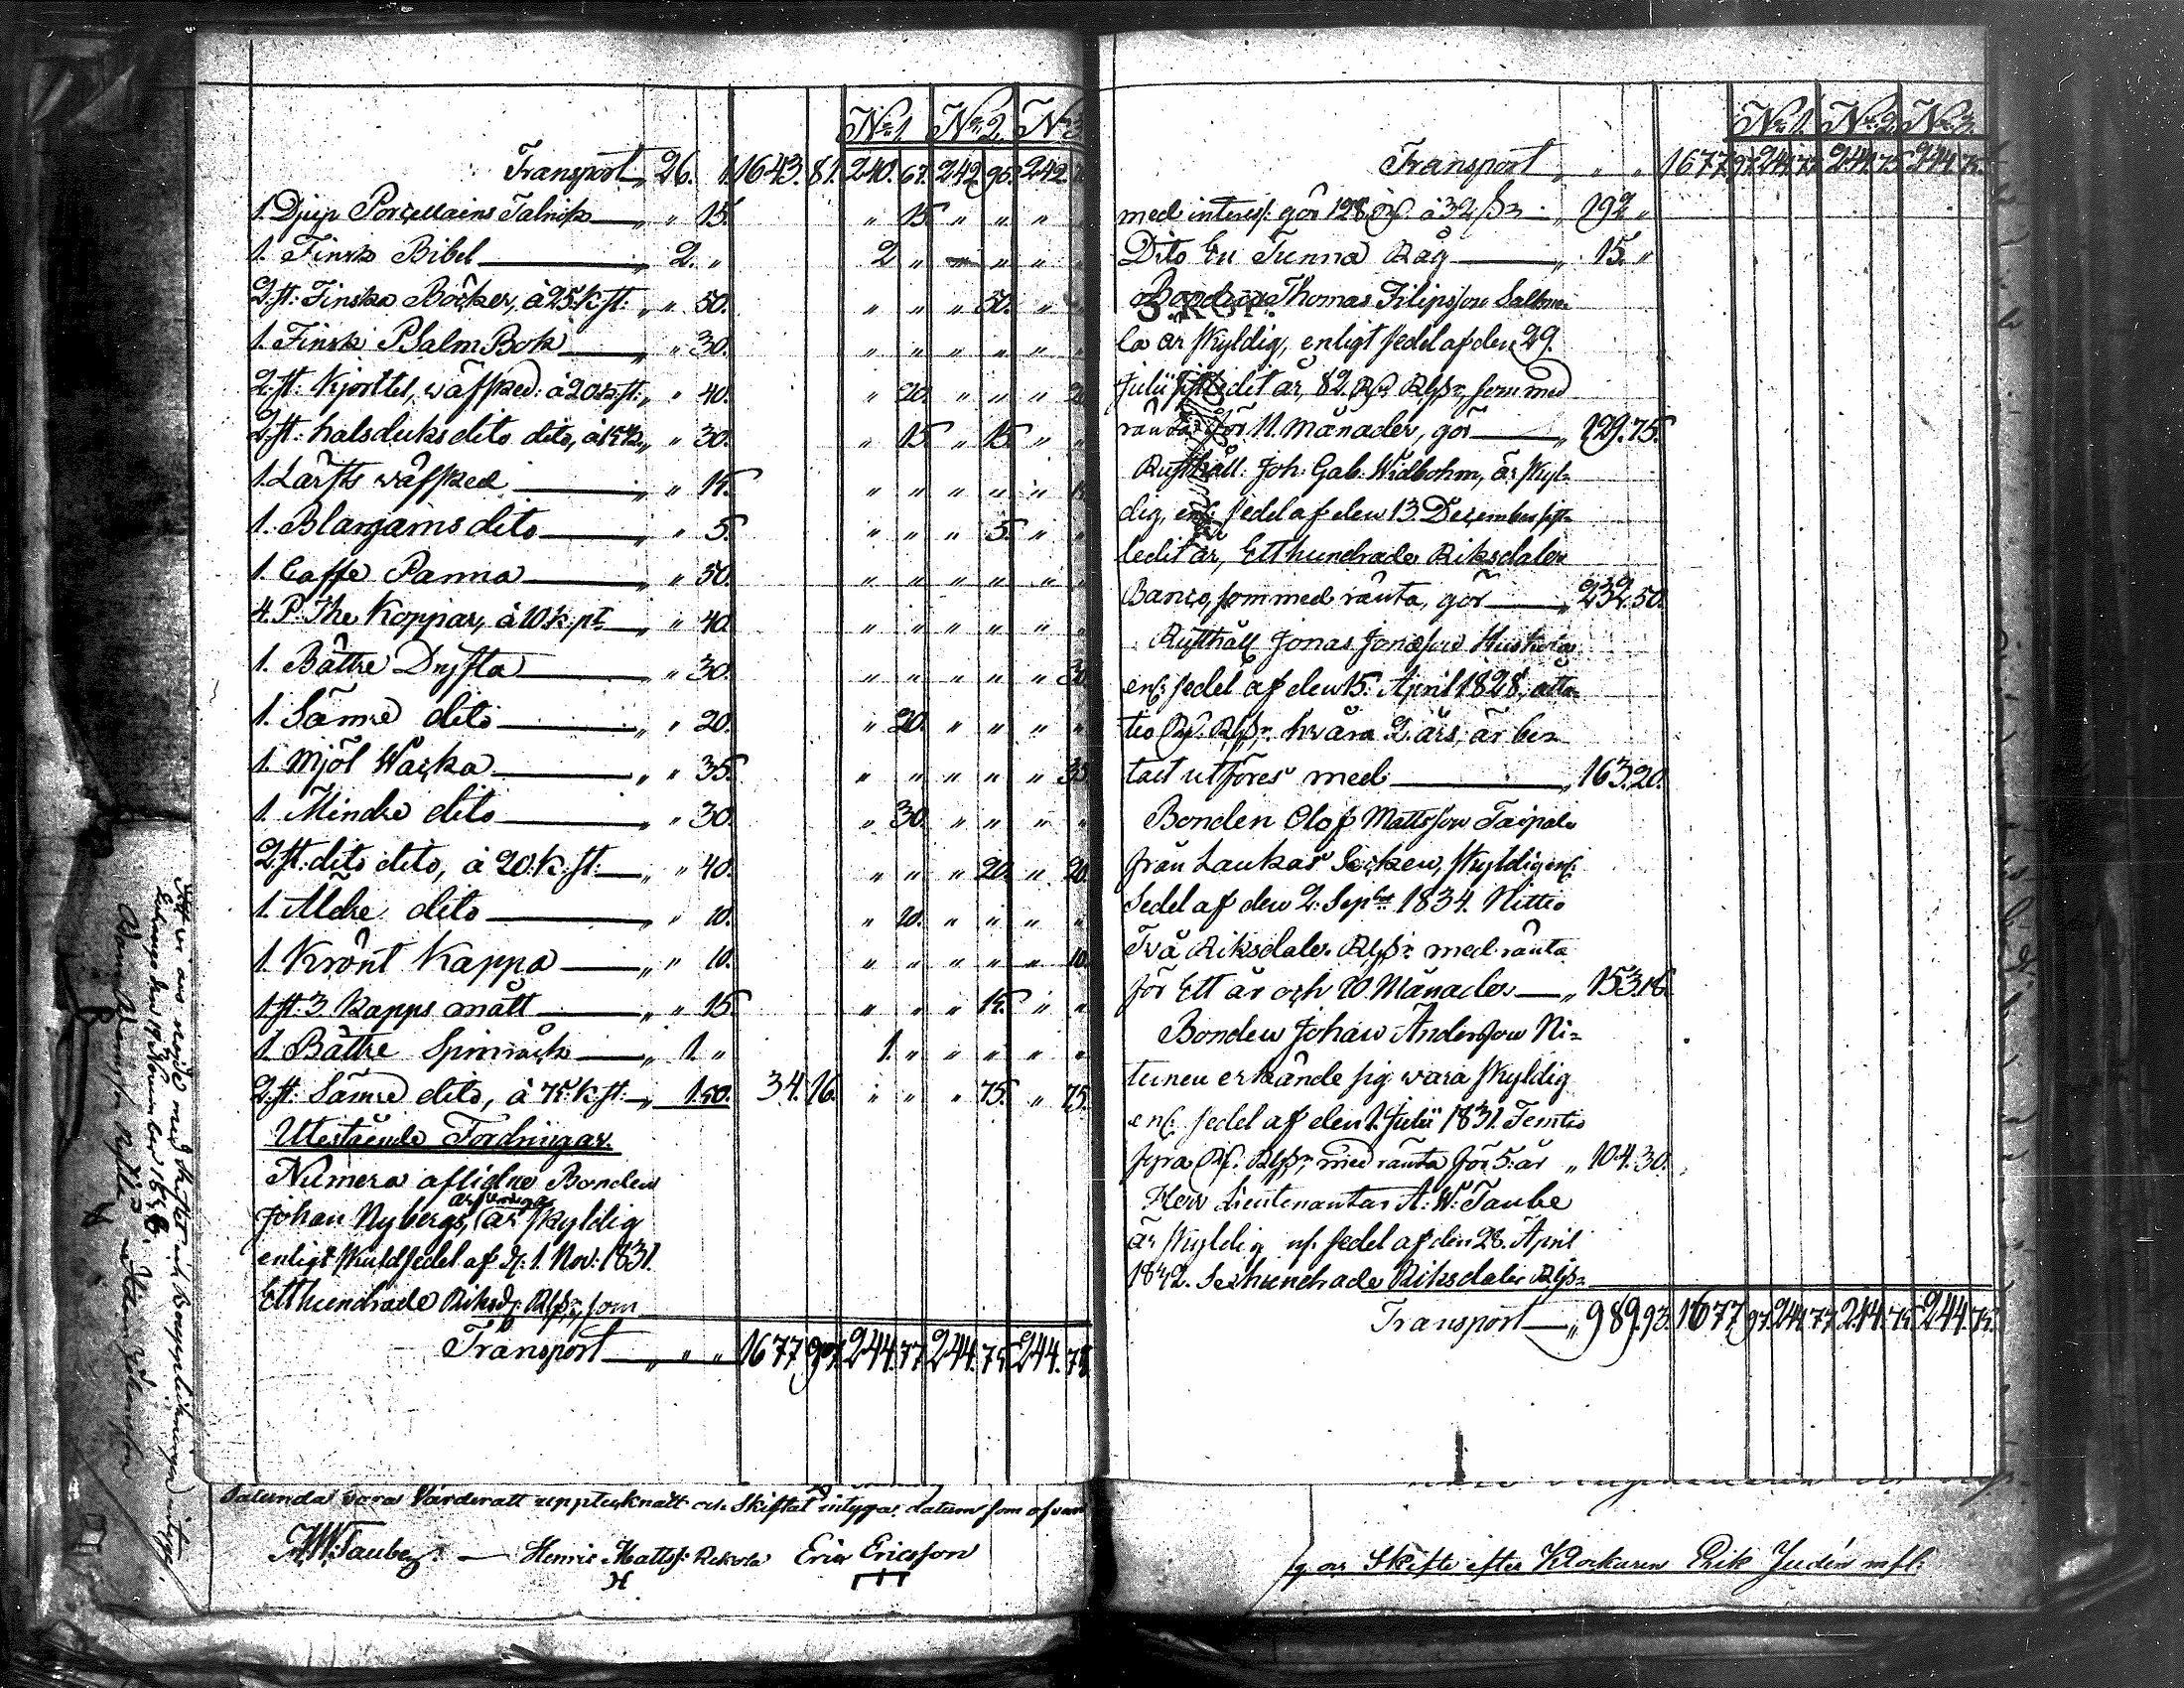 No 1. No 2. No 3
Transport „ 26. 1. 1643. 81. 240. 67. 242. 95. 242.
1. Djup Porzellains Talrick „ „ 15. „ 15. „ „ „
1. Finsk Bibel „ 2. „ 2 „ „ „ „
2. st: Finska Böcker, à 25. k. st: „ „ 50. „ „ „ 50. „
1. Finsk Psalm Bok „ „ 30. „ „ „ „ „ „
2. st: Kjorttel, wäfsked: à 20 k. st: „ „ 40. „ 20. „ „ „ 2
2. st: halsduks dito dito, à 15 k „ „ 30. „ 15. „ 15. „ „
1. Lärfts wäfsked „ „ 15. „ „ „ „ „
1. Blangarns dito „ „ 5. „ „ „ 5. „ „
1. Caffe Panna „ „ 50. „ „ „ „ „ „
4. Pr The Koppar, à 10. k. pr „ „ 40. „ „ „ „ „ „
1. Bättre Dryfta „ „ 30. „ „ „ „ „ 30
1. Sämre dito „ „ 20. „ 20. „ „ „ „
1. Mjöl Wacka „ „ 35. „ „ „ „ „ 35
1. Mindre dito „ „ 30. „ 30. „ „ „ „
2. st: dito dito, à 20. k. st: „ „ 40. „ „ „ 20. „ 20.
1. Äldre dito „ „ 10. „ 10. „ „ „ „
1. Krönt Kappa „ „ 10. „ „ „ „ „ 10.
1. st: 3 Kapps mått „ „ 15. „ „ „ 15. „ „
1. Bättre Spinråck „ 1. „ 1. „ „ „ „ „
2. st: Sämre dito, à 75. k. st: „ 1. 50. 34. 16. „ „ „ 75. „ 75.
Utestående Fordringar.
Numera aflidne Bonden
arfvingar
Johan Nybergs, är skyldig
enligt skuldsedel af d: 1. Nov: 1831.
Ett hundrade Riksd: Rgs, som
Transport „ „ „ 1677 97. 244. 77. 244. 75. 244. 75.
Sålunda vara Värderatt uppteknatt och Skiftat intygar datum som ofvan
A W: Taube Henric Matts: Rekola Eric Ericsson
No 1. No 2. No 3.
Transport „ „ „ 1677. 97. 244. 77. 244. 75. 244. 75.
med interess: gör 128 à 32 „ 192 „
Dito En Tunna Råg „ 15. „
Bonden Thomas Filipsson
la är skyldig, enligt sedel af den 29.
Julii sistledit år, 82. Rd. Rgs, som med
ränta för 11. Månader, gör „ 129. 75.
Rusthåll: Joh: Gab: Widbohm, är skyl-
dig, enl: sedel af den 13. December sist-
ledit år, Ett hundrade Riksdaler
Banco, som med ränta, gör „ 232. 50.
Rusthåll: Jonas Jonasson
enl: sedel af den 15. April 1828, otta-
tio Rd. Rgs, hvara 2. års, är be-
talt utföres med „ 163. 20.
Bonden Olof Mattsson Taipale
från Laukas Socken, skyldig enl:
Sedel af den 2. Sepbr 1834. Nittio
Två Riksdaler Rgs med ränta
för Ett år och 10. Månader „ 153. 16.
Bonden Johan Andersson Ni-
tunen erkände sig wara skyldig
enl: sedel af den 1. Julii 1831. Femtio
fyra Rd. Rgs, med ränta för 5. år „ 104. 30.
Herr Lieutenanten A: W: Taube
är skyldig enl: sedel af den 28. April
1832. Sexhundrade Riksdaler Rgs
Transport „ 989. 93. 1677 97. 244. 77. 244. 75. 244. 75.
Skifte efter Klockaren Erik Judén